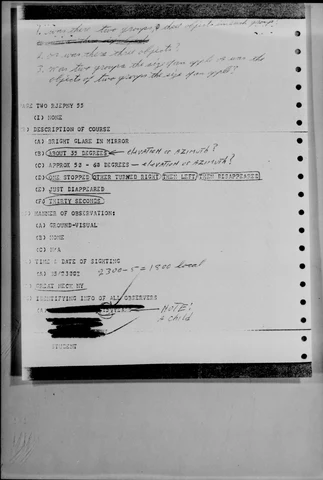 1. was there two groups & that objects in each group?
2. or was there three objects?
3. Was two groups the size of an apple or was the
objects of two groups the size of an apple?
PAGE TWO RJEPNY 55
(I) NONE
DESCRIPTION OF COURSE
(A) BRIGHT GLARE IN MIRROR
(B) ABOUT 35 DEGREES - ELEVATION or AZIMUTH?
(C) APPROX 52 - 60 DEGREES - elevation or AZIMUTH?
(D) ONE STOPPED OTHER TURNED RIGHT THEN LEFT THEN DISAPPEARED
(E) JUST DIAPPEARED
(F) THIRTY SECONDS
MANNER OF OBSERVATION:
(A) GROUND-VISUAL
(B) NONE
(C) N/A
TIME & DATE OF SIGHTING
(A) 15/2300Z 2300-5=1800 local
GREAT NECK NY
IDENTIFYING INFO OF ALL OBSERVERS
NOTE:
A child
STUDENT